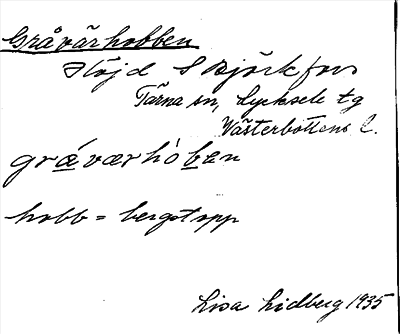 Gråvärhobben
Höjd S Björkfors
Tärna sn, Lycksele tg
Västerbottens l.
grǽværhò̱ben
hobb = bergstopp
Lisa Lidberg 1935